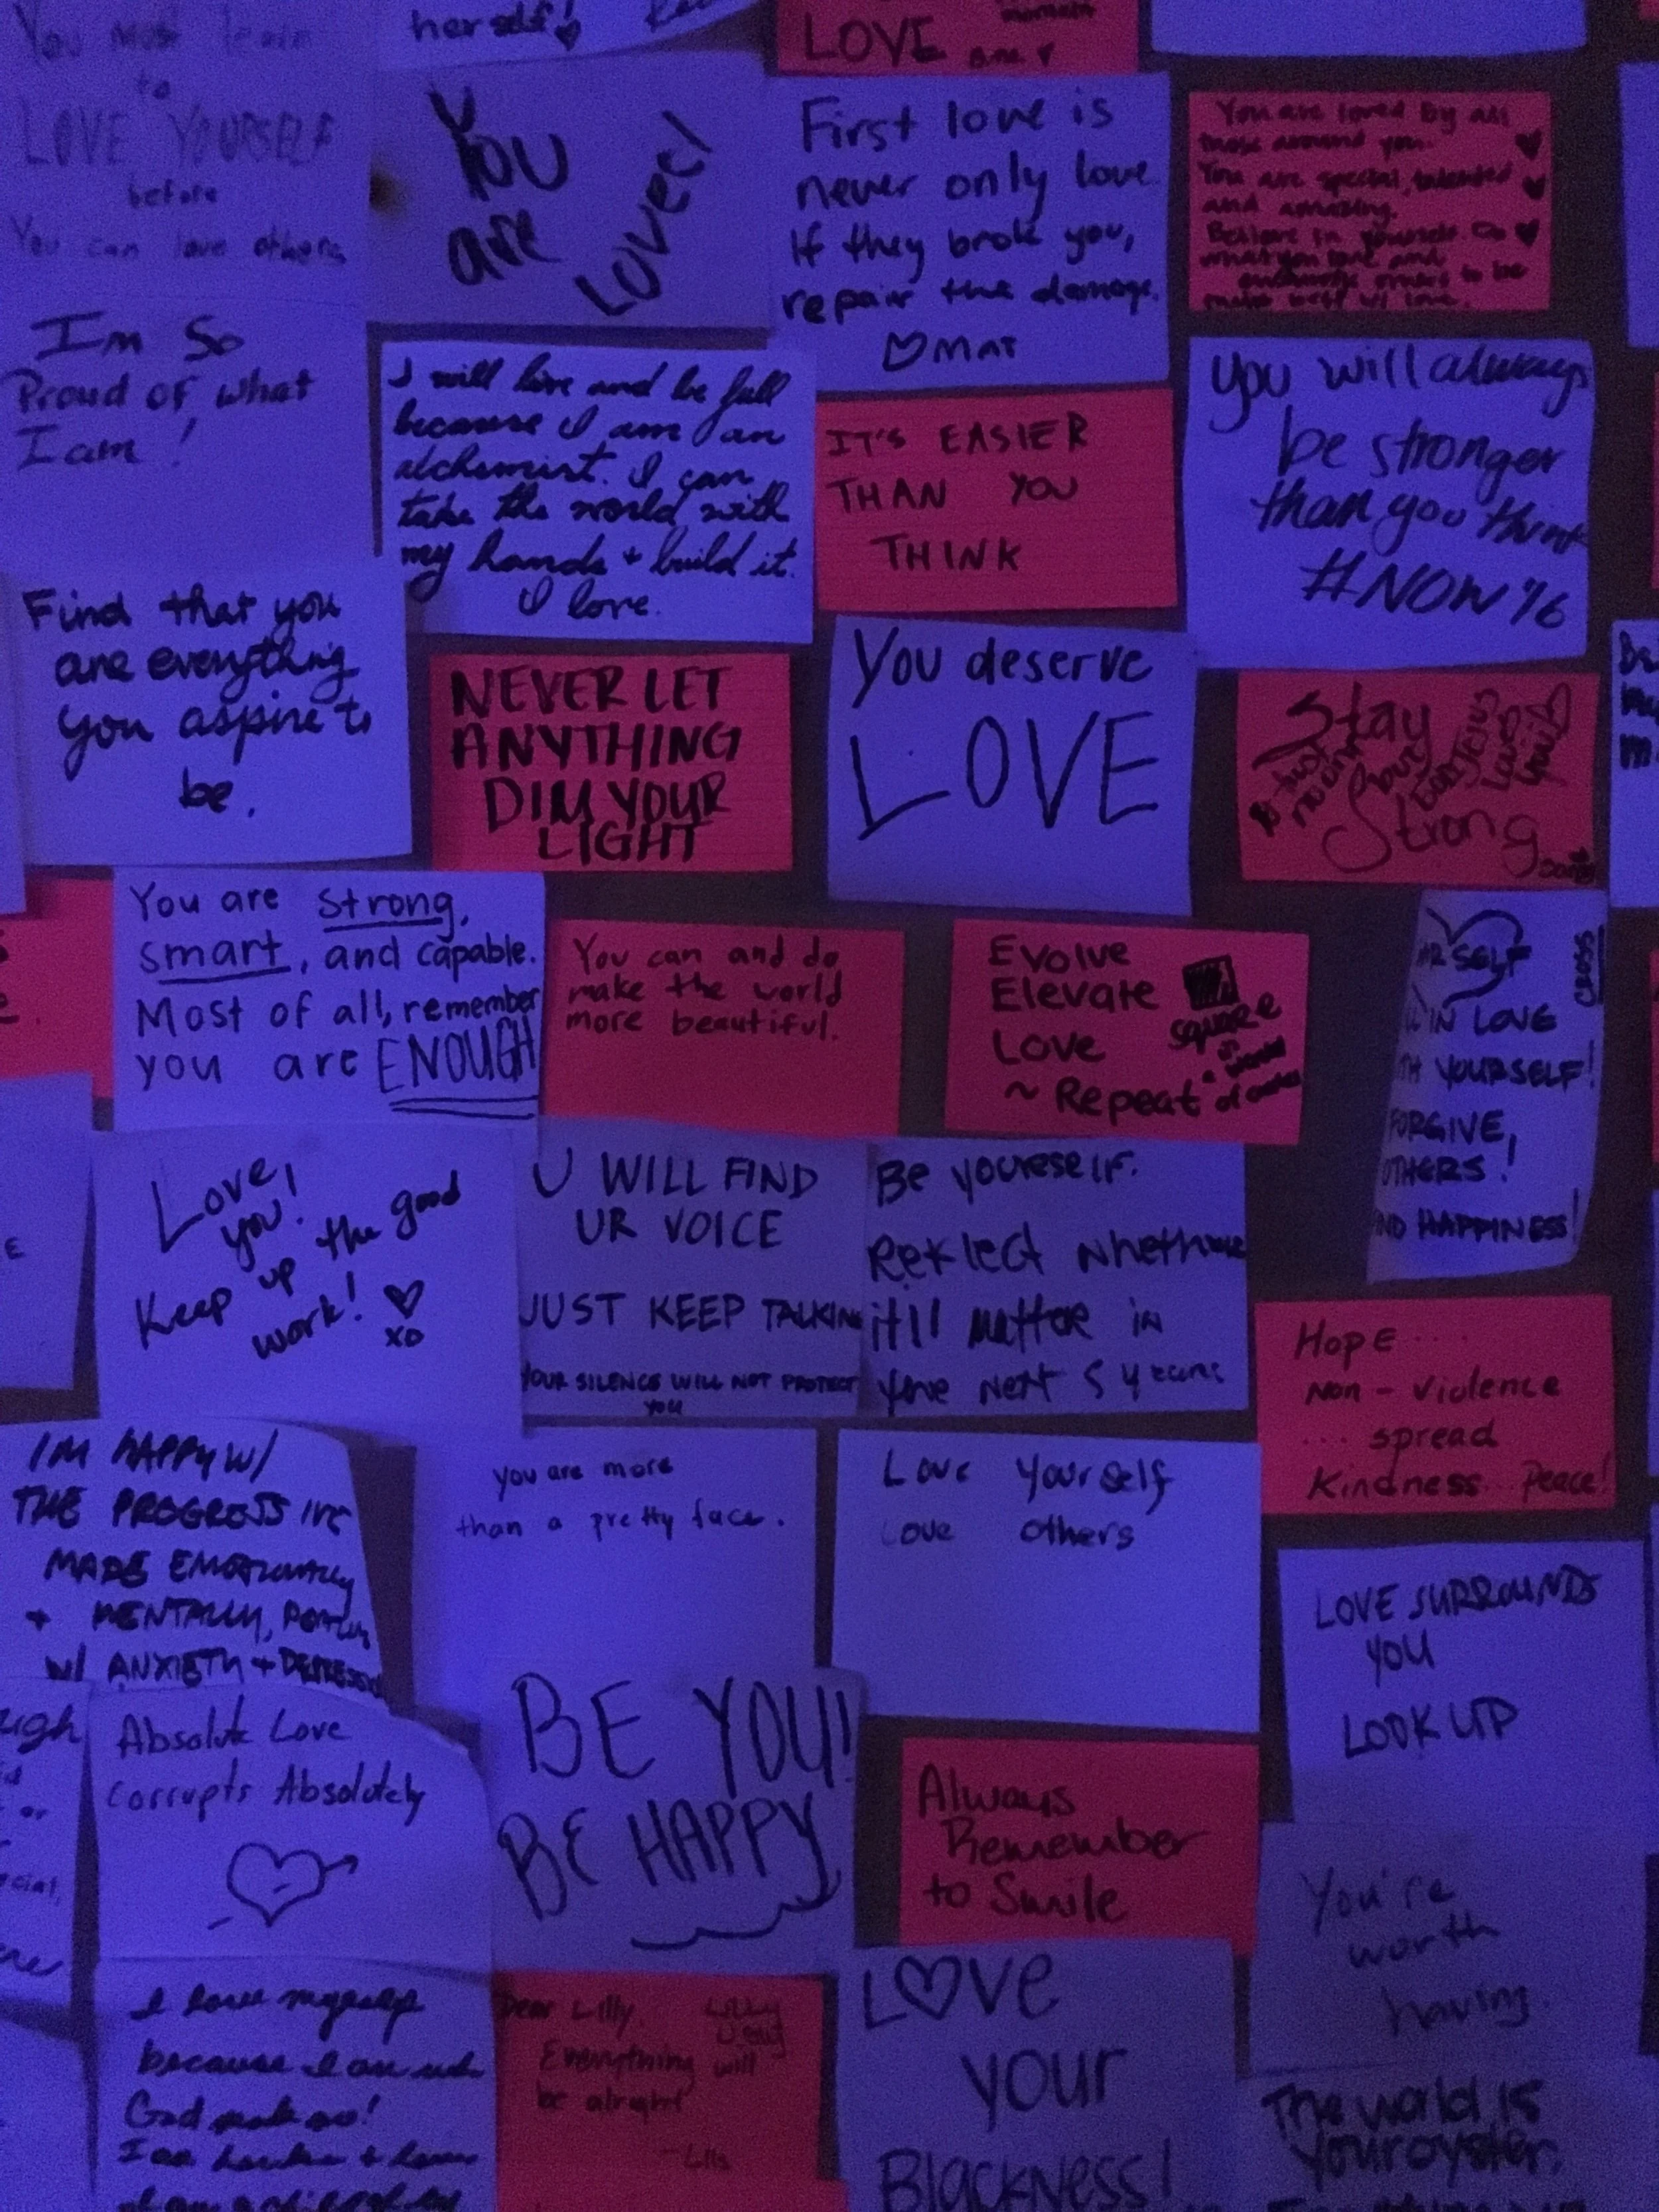 You must learn
to
LOVE YOURSELF
before
You can love others
herself!
LOVE
You
are
LOVED!
First love is
never only love
If they broke you,
repair the damage.
♡ MAT
You are loved by all
those around you.
You are special, talented
and amazing.
Believe in yourself
what you love and
I'm So
Proud of what
I am!
I will live and be full
because I am an
alchemist. I can
take the world with
my hands + build it.
I love.
IT'S EASIER
THAN YOU
THINK
you will always
be stronger
than you think
#NOW16
Find that you
are everything
you aspire to
be.
NEVER LET
ANYTHING
DIM YOUR
LIGHT
You deserve
LOVE
Stay
Strong
You are strong,
smart, and capable.
Most of all, remember
you are ENOUGH
You can and do
make the world
more beautiful.
Evolve
Elevate
Love
~ Repeat
square
in
a world
of
SELF
CROSS
IN LOVE
YOURSELF!
FORGIVE,
OTHERS!
HAPPINESS!
Love,
you!
Keep up the good
work! ♡
xo
U WILL FIND
UR VOICE
JUST KEEP TALKIN
YOUR SILENCE WILL NOT PROTECT
YOU
Be yourself.
Reflect
it'll matter in
next 5 years
Hope ....
Non - Violence
... spread
Kindness... Peace!
I'M HAPPY W/
THE PROGRESS I'VE
MADE EMOTIONALLY
+ MENTALLY,
W/ ANXIETY + DEPRESSION
you are more
than a pretty face.
Love Yourself
Love others
LOVE SURROUNDS
YOU
LOOK UP
Absolute Love
Corrupts Absolutely
BE YOU!
BE HAPPY
Always
Remember
to Smile
You're
worth
having.
I love myself
because I am
God
Dear Lilly,
Everything will
be alright
LOVE
your
Blackness!
The world is
your oyster.